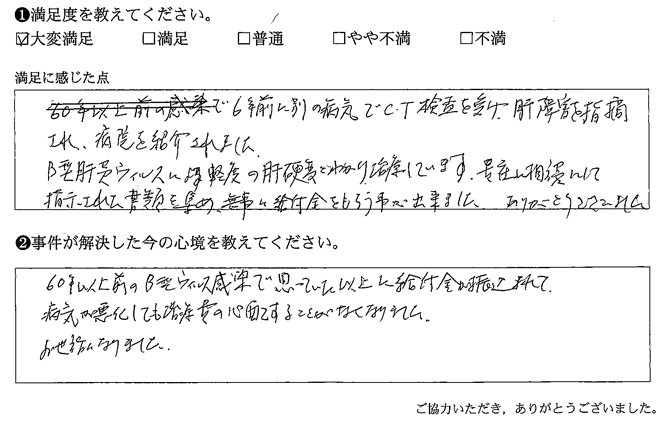 ❶満足度を教えてください。
☑大変満足 □満足 □普通 □やや不満 □不満
満足に感じた点
60年以上前の感染で6年前に別の病気でC.T検査を受け、肝障害を指摘
され、病院を紹介されました。
B型肝炎ウィルスによる軽度の肝硬変とわかり治療しています。
指示された書類を集め、無事に給付金をもらう事が出来ました ありがとうございました
❷事件が解決した今の心境を教えてください。
60年以上前のB型ウィルス感染で思っていた以上に給付金が振込まれて、
病気が悪化しても治療費の心配をすることがなくなりました。
お世話になりました。
ご協力いただき，ありがとうございました。